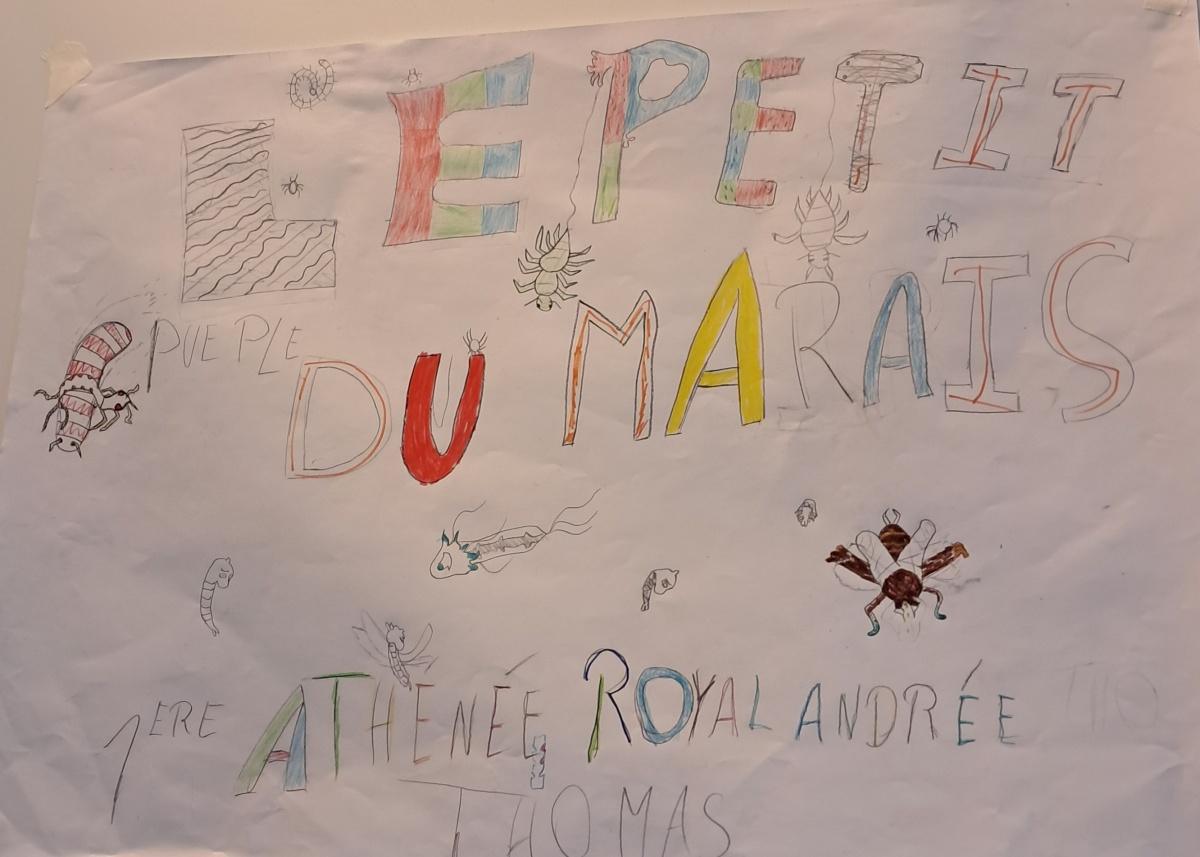 LE PETIT
PUEPLE
DU MARAIS
1ERE ATHÉNÉE ROYAL ANDRÉE
THOMAS